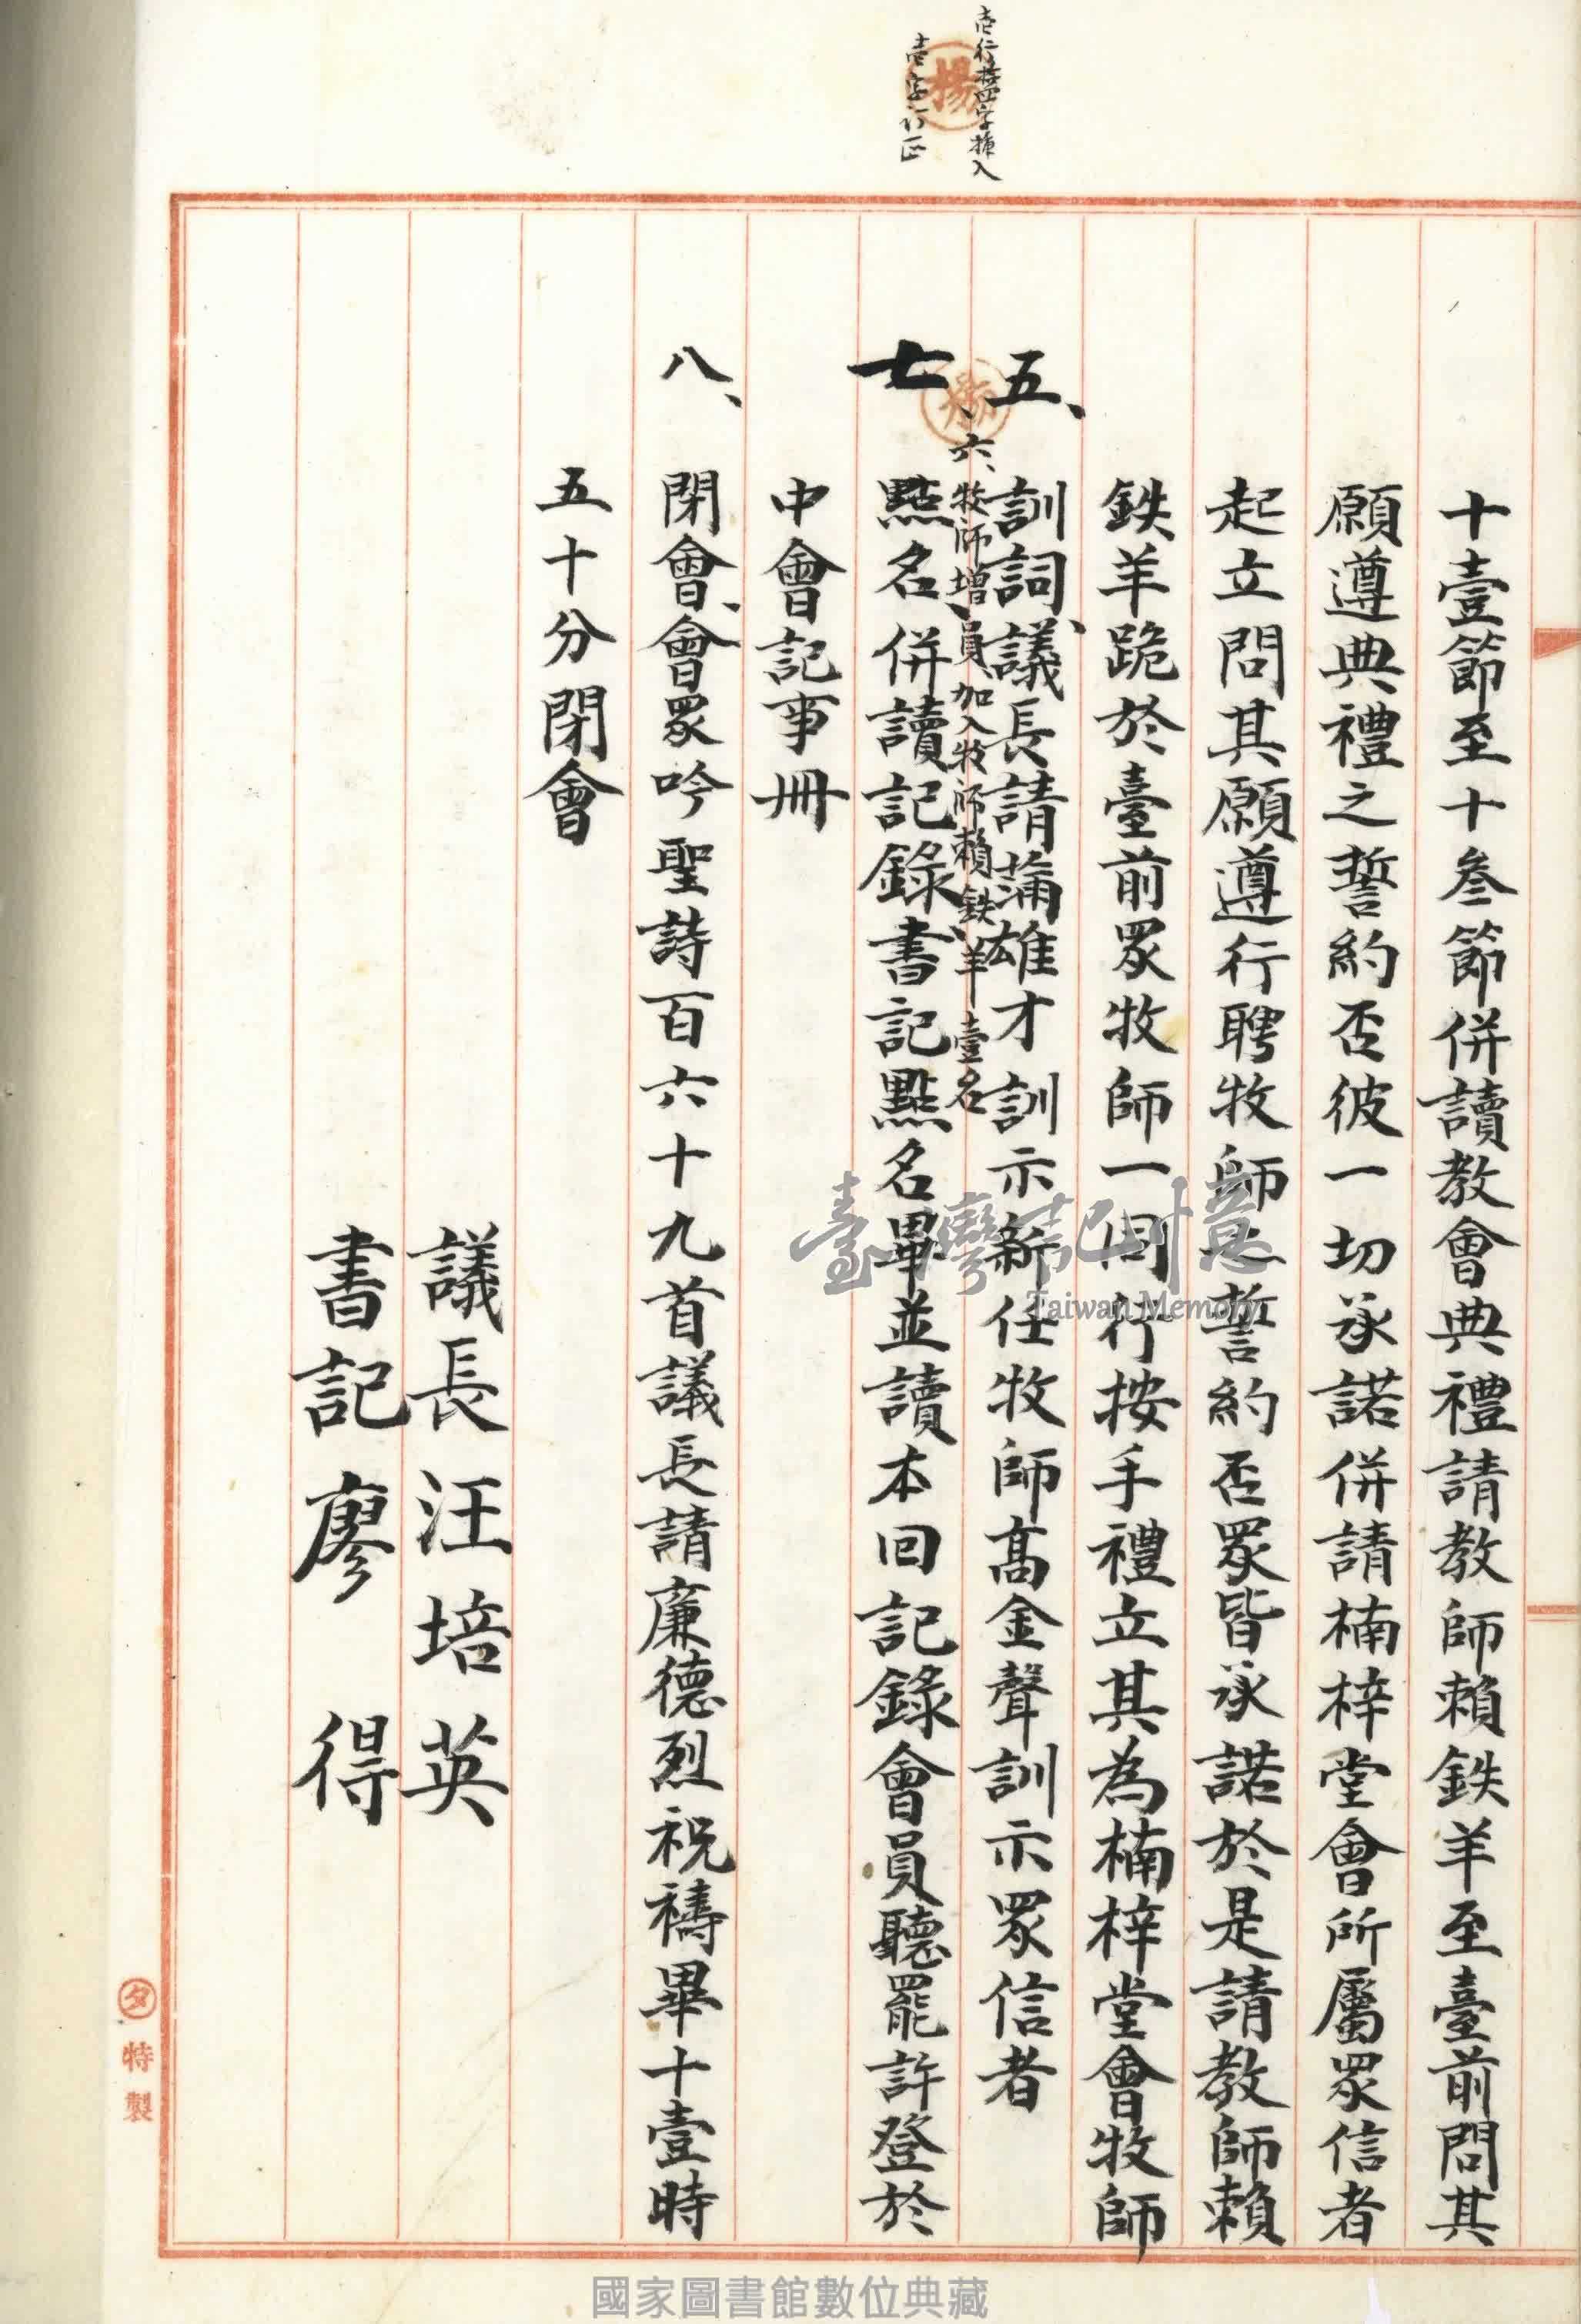 壱行拾四字挿入
壱字訂正
十壹節至十叄節併讀教會典禮請教師賴鉄羊至臺前問其
願遵典禮之誓約否彼一切承諾併請楠梓堂會所屬眾信者
起立問其願遵行聘牧師之誓約否眾皆承諾於是請教師賴
鉄羊跪於臺前眾牧師一同行按手禮立其為楠梓堂會牧師
五、訓詞、議長請蒲雄才訓示新任牧師高金聲訓示眾信者
六、牧師增員、加入牧師賴鉄羊壹名
七、點名、併讀記錄、書記點名畢並讀本回記錄會員聽罷許登於
中會記事冊
八、閉會、會眾吟聖詩百六十九首議長請廉德烈祝禱畢十壹時
五十分閉會
議長汪培英
書記廖得
夕特製
臺灣記憶
Taiwan Memory
國家圖書館數位典藏